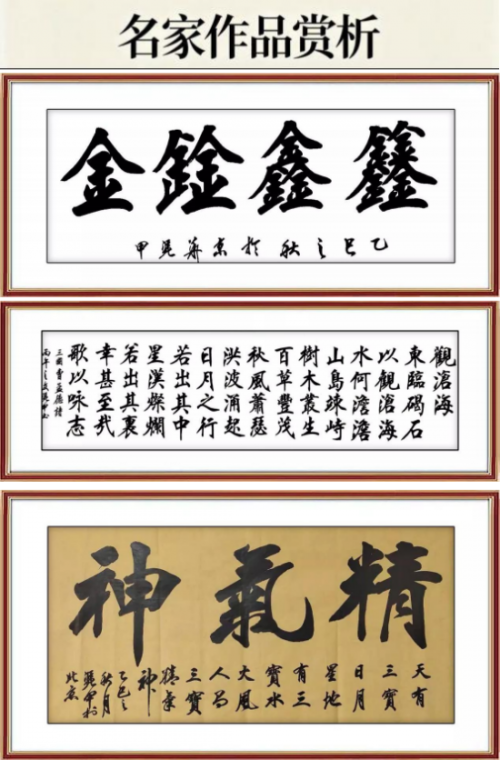 名家作品赏析
金鍂鑫𨰻
乙巳之秋於京華甲
觀滄海
東臨碣石
以觀滄海
水何澹澹
山島竦峙
樹木叢生
百草豐茂
秋風蕭瑟
洪波涌起
日月之行
若出其中
星漢燦爛
若出其裏
幸甚至哉
歌以咏志
三國曹孟德詩
丙午之
精氣神
天有
三寶
日月
星地
有三
寶水
火風
人有
三寶
精氣
神
乙巳之
秋月
甲於
北京